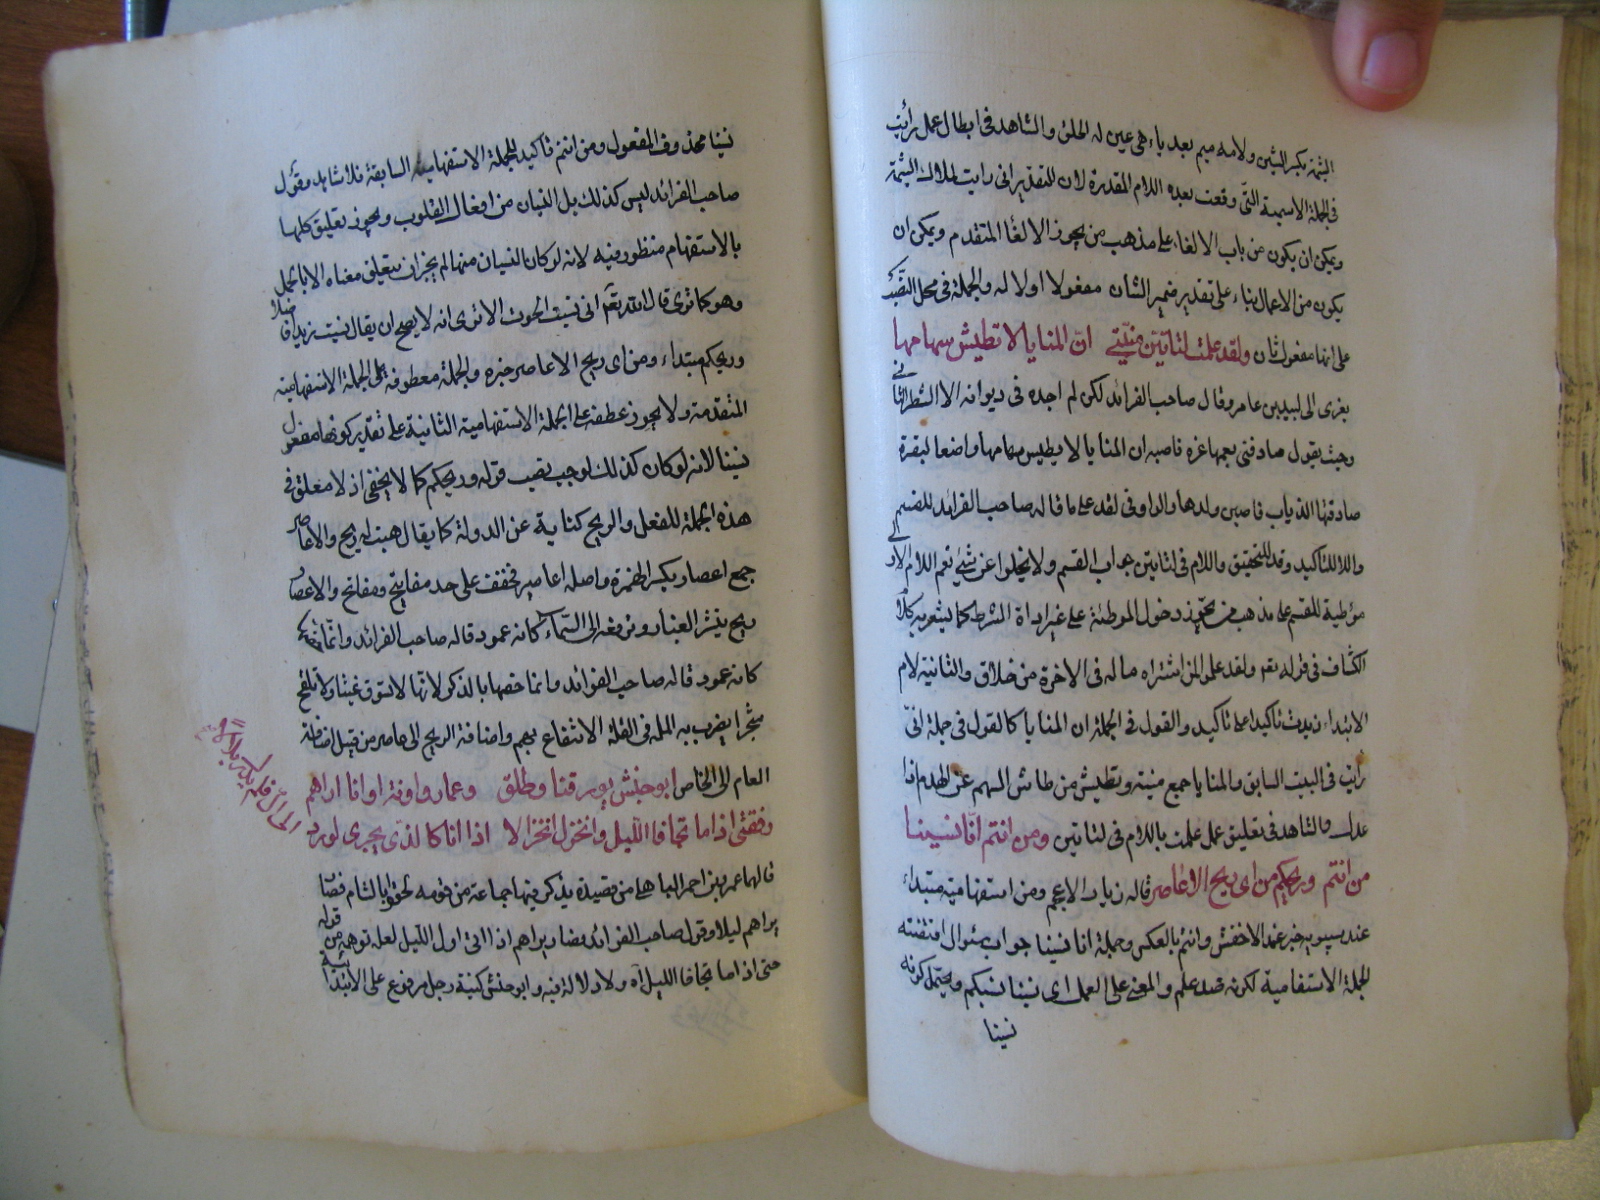 الشيمة بكسر الشين ولامه ميم بعد ياء هي عين له الخلق والشاهد في ابطال عمل رأيت
في الجملة الاسمية التي وقعت بعده اللام المقدرة لان التقدير اني رايت لملاك الشيمة
ويمكن ان يكون من باب الالغاء على مذهب من يجوز الالغا المتقدم ويمكن ان
يكون من الاعمال بناء على تقدير ضمير الشان مفعولا اولا له والجملة في محل النصب
على انها مفعول ثان ولقد علمت لتاتين منيتي ان المنايا لا تطيش سهامها
يعزى الى لبيد بن عامر وقال صاحب الفرائد لكن لم اجده في ديوانه الا الشطر الثاني
وحيث يقول صادفن منها غرة فاصبنه ان المنايا لا يطيش سهامها واضعا لبقرة
صادفتها الذياب فاصبن ولدها والواو في لقد على ما قاله صاحب الفرائد للقسم
واللام للتاكيد وقد للتحقيق واللام في لتاتين جواب القسم ولا يخلوا عن شيء نعم اللام الاولى
موطية للقسم على مذهب من يجوز دخول الموطئة على غير اداة الشرط كما يشعر به كلام
الكشاف في قوله تعالى ولقد علموا لمن اشتراه ماله في الاخرة من خلاق والثانية لام
الابتداء زيدت تاكيدا على تاكيد والقول في الجملة ان المنايا كالقول في جملة اني
رايت في البيت السابق والمنايا جمع منية وتطيش من طاش السهم عن الهدف اذا
عدل والشاهد في تعليق عمل علمت باللام في لتاتين ومن انتم انا نسينا
من انتم وريحكم من اي ريح الاعاصر قاله زياد الاعجم ومن استفهامية مبتداء
عند سيبويه خبر عند الاخفش وانتم بالعكس وجملة انا نسينا جواب سئوال اقتضته
الجملة الاستفهامية لكونه قصد علم والمعنى على العمل اي نسينا نسبكم ويحتمل كونه
نسينا
نسينا محذوف المفعول ومن انتم تاكيد للجملة الاستفهامية السابقة فلا شاهد وقول
صاحب الفرائد ليس كذلك بل النسيان من افعال القلوب ويجوز تعليق كلها
بالاستفهام منظور فيه لانه لو كان النسيان منها لم يجز ان يتعلق معناه الا بالجمل
وهو كما ترى قال الله تعالى اني نسيت الحوت الا ترى انه لا يصح ان يقال نسيت زيدا فاضلا
وريحكم مبتداء ومن اي ريح الاعاصر خبره والجملة معطوفة على الجملة الاستفهامية
المتقدمة ولا يجوز عطفه على الجملة الاستفهامية الثانية على تقدير كونها مفعول
نسينا لانه لو كان كذلك لوجب نصب قوله وريحكم كما لا يخفى اذ لا معلق في
هذه الجملة للفعل والريح كناية عن الدولة كما يقال هبت له ريح والاعاصر
جمع اعصار بكسر الهمزة واصله اعاصير فخفف على حد مفاتيح ومفاتح والاعصار
ريح يثير الغبار ويرفعه الى السماء كانه عمود قاله صاحب الفرائد وانما
كانه عمود قاله صاحب الفوائد وانما خصها بالذكر لانها لا تسوق غيثا ولا تلقح
شجرا يضرب به المثل في قلة الانتفاع بهم واضافة الريح الى عاصر من قبيل اضافة
العام الى الخاص ابو حنش يورقنا وطلق وعمار واونة اوانا اراهم
رفقتي اذا ما تجافا الليل وانخزل انخزالا اذا انا كالذي يجري لورد
الى آل فلم يدرك بلالا
قالهما عمرو بن احمر الباهلي من قصيدة يذكر فيها جماعة من قومه لحقوا بالشام فصار
يراهم ليلا وقول صاحب الفرائد فصار يراهم اذا اتى اول الليل لعله توهمه من قوله
حتى اذا ما تجافا الليل آه ولا دلالة فيه وابو حنش كنية رجل مرفوع على الابتدائية